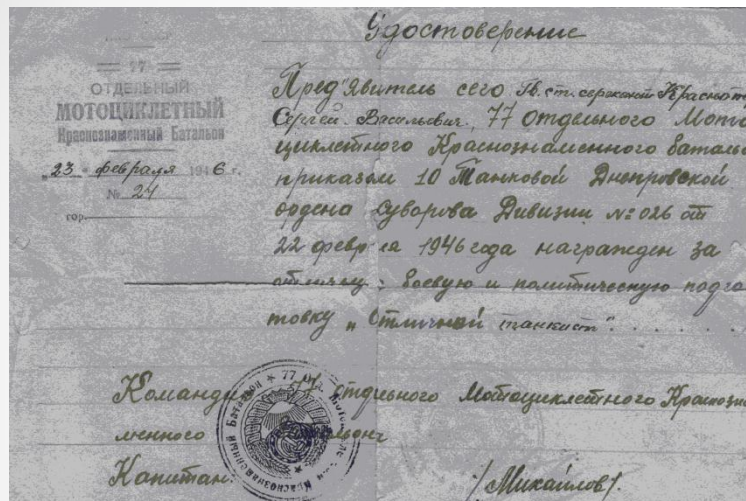 = 77 =
ОТДЕЛЬНЫЙ
МОТОЦИКЛЕТНЫЙ
Краснознаменный Батальон
„23" февраля 1946 г.
№ 24
гор.
Удостоверение
Пред'явитель сего Гв. ст. сержант
Сергей Васильевич, 77 Отдельного Мото
циклетного Краснознаменного баталь
приказом 10 Танковой Днепровской
ордена Суворова Дивизии №026 от
22 февраля 1946 года награжден за
боевую и политическую подго
товку „Отличной танкист".
Командир 77 отдельного Мотоциклетного Краснозна
менного
Капитан: /Михайлов/.
77
Краснознаменный Батальон